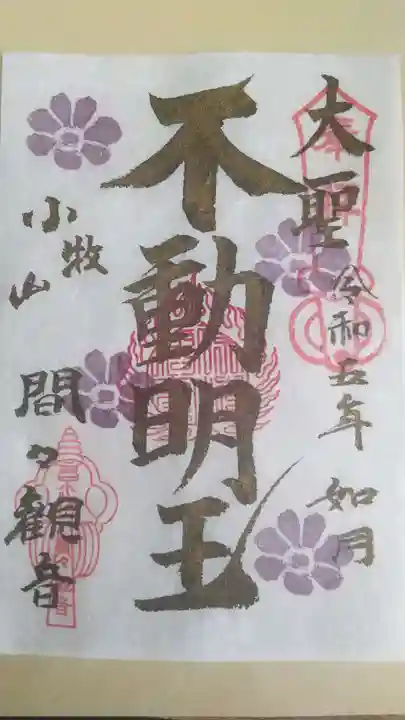 奉拝
大聖
令和五年 如月
不動明王
小牧山
間々観音